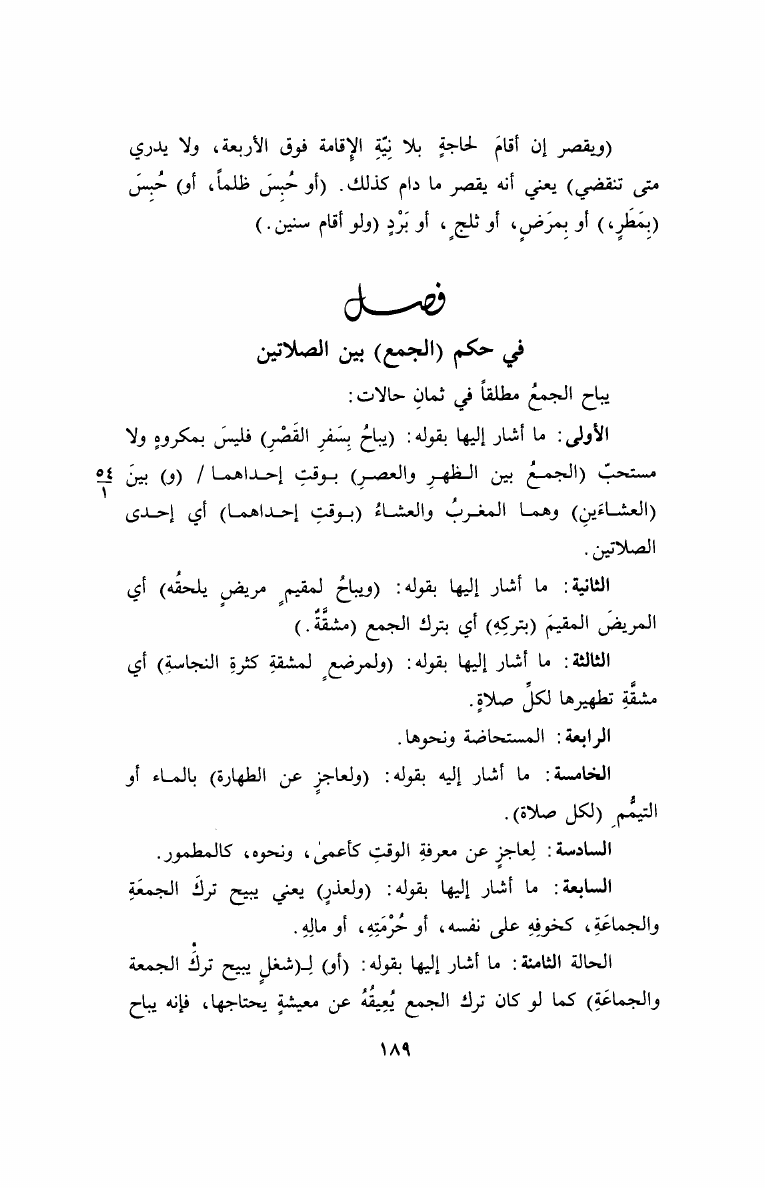 (ويقصر إن أقامَ لحاجةٍ بلا نِيَّةِ الإقامة فوق الأربعة، ولا يدري
متى تنقضي) يعني أنه يقصر ما دام كذلك. (أو حُبِسَ ظلماً، أو) حُبِسَ
(بِمَطَرٍ،) أو بِمرَضٍ، أو ثلجٍ، أو بَرْدٍ (ولو أقام سنين.)
فصل
في حكم (الجمع) بين الصلاتين
يباح الجمعُ مطلقاً في ثمانِ حالات:
الأولى: ما أشار إليها بقوله: (يباحُ بِسَفرِ القَصْرِ) فليسَ بمكروهٍ ولا
مستحبّ (الجمعُ بين الظهرِ والعصرِ) بوقتِ إحداهما / (و) بينَ ٥٤/١
(العشاءَينِ) وهما المغربُ والعشاءُ (بوقتِ إحداهما) أي إحدى
الصلاتين.
الثانية: ما أشار إليها بقوله: (ويباحُ لمقيمٍ مريضٍ يلحقُه) أي
المريضَ المقيمَ (بتركِهِ) أي بترك الجمع (مشقَّةٌ.)
الثالثة: ما أشار إليها بقوله: (ولمرضعٍ لمشقةِ كثرةِ النجاسةِ) أي
مشقَّةِ تطهيرها لكلِّ صلاةٍ.
الرابعة: المستحاضة ونحوها.
الخامسة: ما أشار إليه بقوله: (ولعاجزٍ عن الطهارة) بالماء أو
التيمُّمِ (لكل صلاة).
السادسة: لِعاجزٍ عن معرفةِ الوقتِ كأعمىٰ، ونحوه، كالمطمور.
السابعة: ما أشار إليها بقوله: (ولعذرٍ) يعني يبيح تركَ الجمعَةِ
والجماعَةِ، كخوفِهِ على نفسه، أو حُرْمَتِهِ، أو مالِهِ.
الحالة الثامنة: ما أشار إليها بقوله: (أو) لِـ(شغلٍ يبيح تركَ الجمعة
والجماعَةِ) كما لو كان ترك الجمع يُعِيقُهُ عن معيشةٍ يحتاجها، فإنه يباح
١٨٩